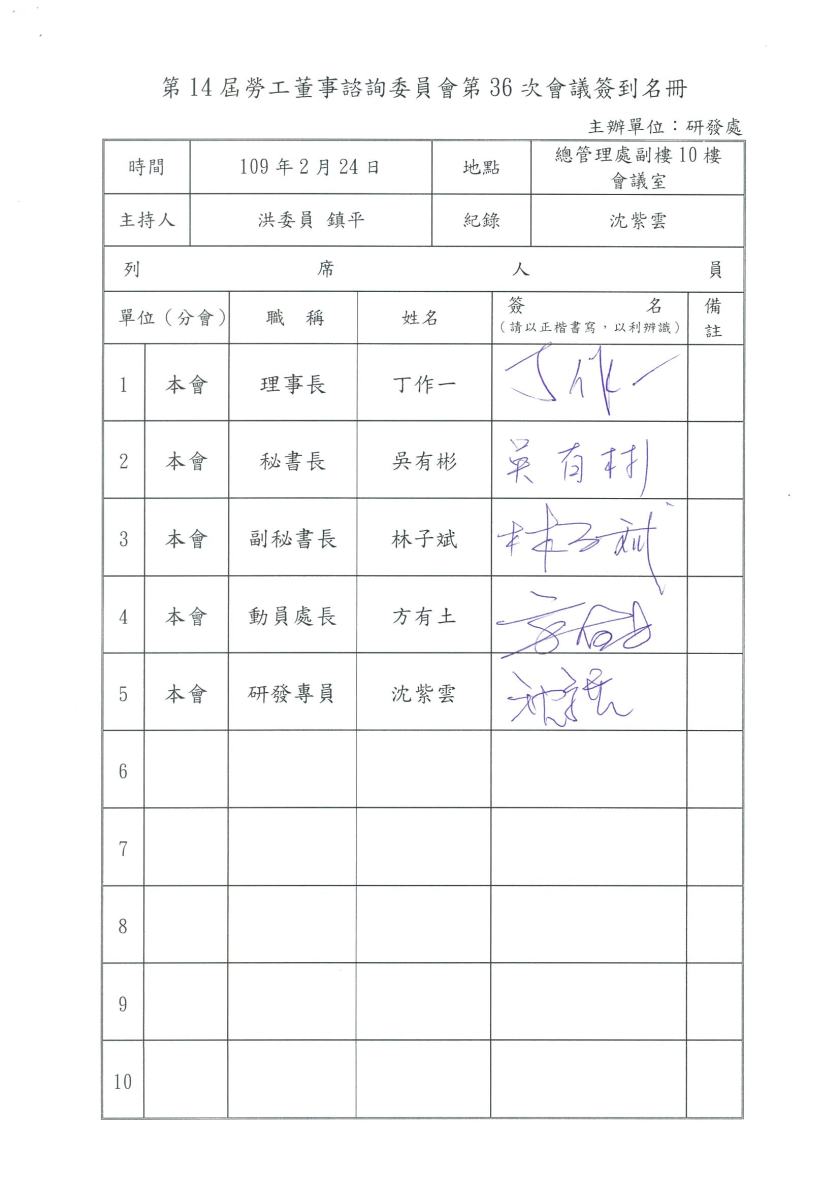 第14屆勞工董事諮詢委員會第36次會議簽到名冊
主辦單位：研發處
時間 109年2月24日 地點 總管理處副樓10樓
會議室
主持人 洪委員 鎮平 紀錄 沈紫雲
列 席 人 員
單位（分會） 職 稱 姓名 簽 名 備
（請以正楷書寫，以利辨識） 註
1 本會 理事長 丁作一 丁作一
2 本會 秘書長 吳有彬 吳有彬
3 本會 副秘書長 林子斌 林子斌
4 本會 動員處長 方有土
5 本會 研發專員 沈紫雲
6
7
8
9
10